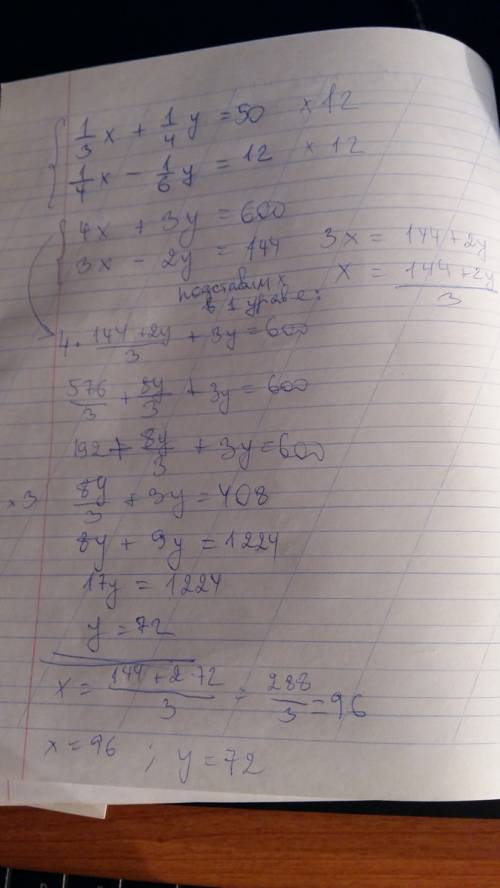 1/3 x + 1/4 y = 50 × 12
1/4 x - 1/6 y = 12 × 12
4x + 3y = 600
3x - 2y = 144
3x = 144+2y
x = (144+2y)/3
подставим x
в 1 уравн-е:
4 · (144+2y)/3 + 3y = 600
576/3 + 8y/3 + 3y = 600
192 + 8y/3 + 3y = 600
×3 8y/3 + 3y = 408
8y + 9y = 1224
17y = 1224
y = 72
x = (144 + 2·72)/3 = 288/3 = 96
x = 96 ; y = 72